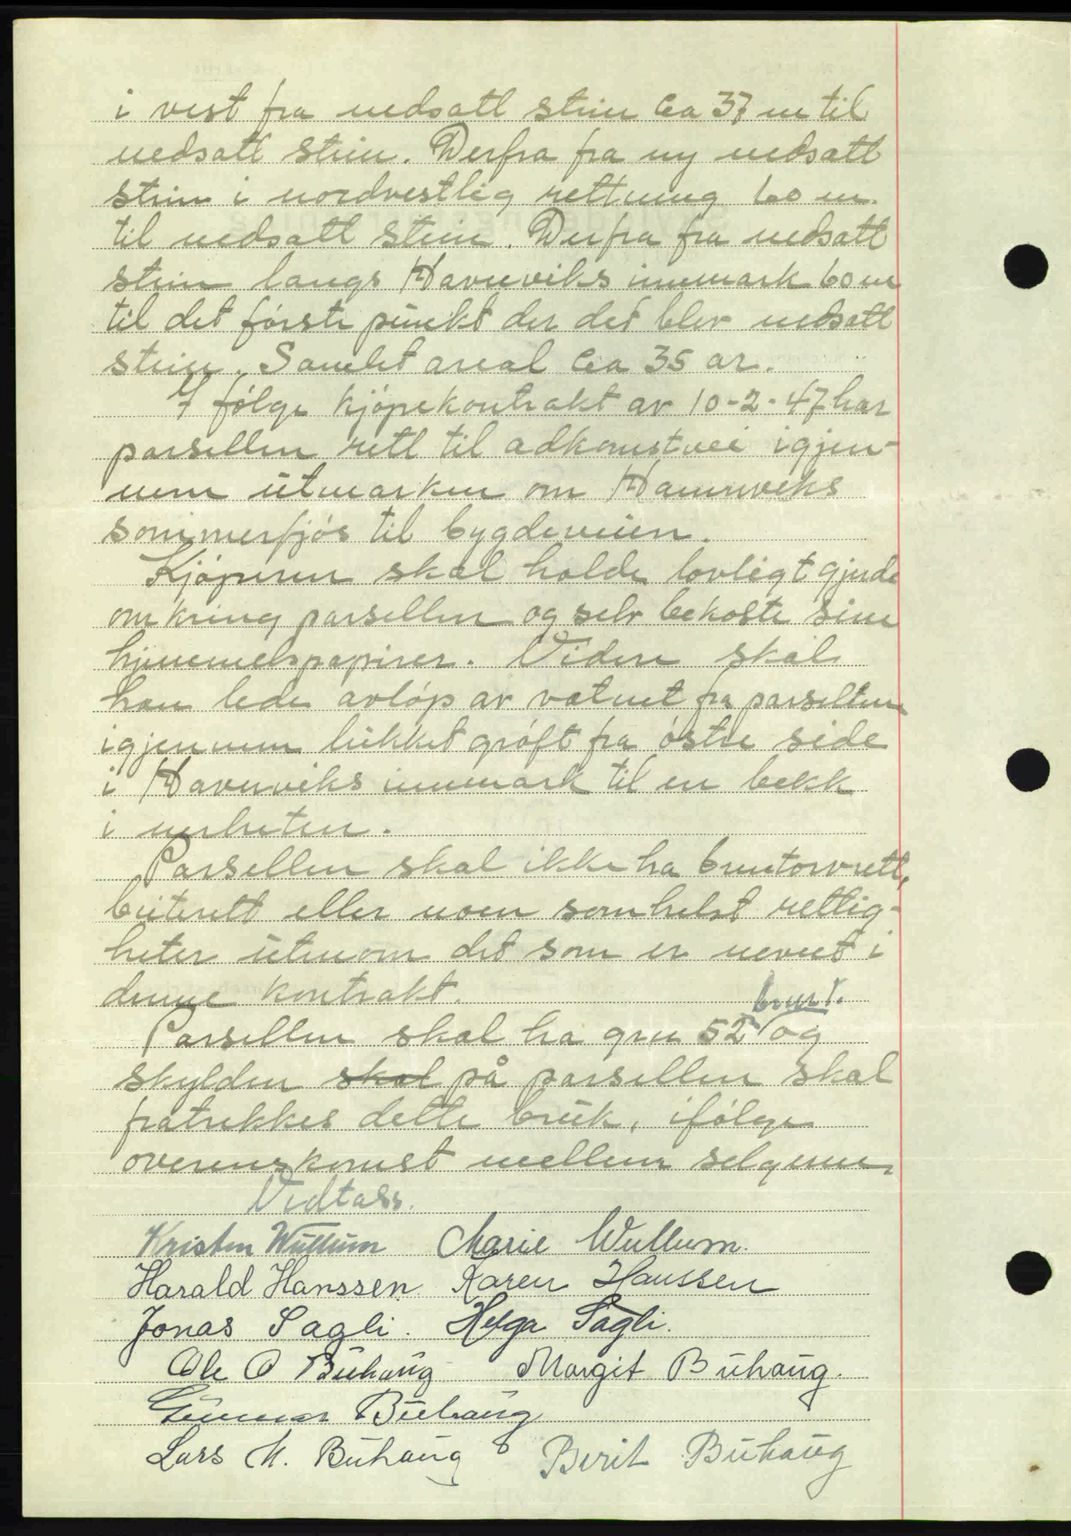 i vest fra nedsatt stein ca 37 m til
nedsatt stein. Derfra fra ny nedsatt
stein i nordvestlig rettning 60 m.
til nedsatt stein. Derfra fra nedsatt
stein langs Havnviks innmark 60 m
til det første punkt der det blev nedsatt
stein. Samlet areal ca 35 ar.
If følge kjöpekontrakt av 10-2-47 har
parsellen rett til adkomstvei igjen-
nem utmarken om Havnviks
sommerfjös til bygdeveien.
Kjöperen skal holde lovligt gjerde
omkring parsellen og selv bekoste sine
hjemmelspapirer. Videre skal
han lede avløp av vatnet fra parsellen
igjennem lukket grøft fra östre side
i Havnviks innmark til en bekk
i nerheten.
Parsellen skal ikke ha brentorvrett,
beiterett eller noen somhelst rettig-
heter utenom det som er nevnt i
denne kontrakt.
bnr 1.
Parsellen skal ha gnr 52 og
skylden skal på parsellen skal
fratrekkes dette bruk, ifølge
overenskomst mellem selgerne.
Vedtass.
Kristen Wullum Marie Wullum.
Harald Hanssen Karen Hanssen
Jonas Sagli. Helga Sagli.
Ole O Buhaug Margit Buhaug.
Gunnar Buhaug
Lars M. Buhaug Berit Buhaug